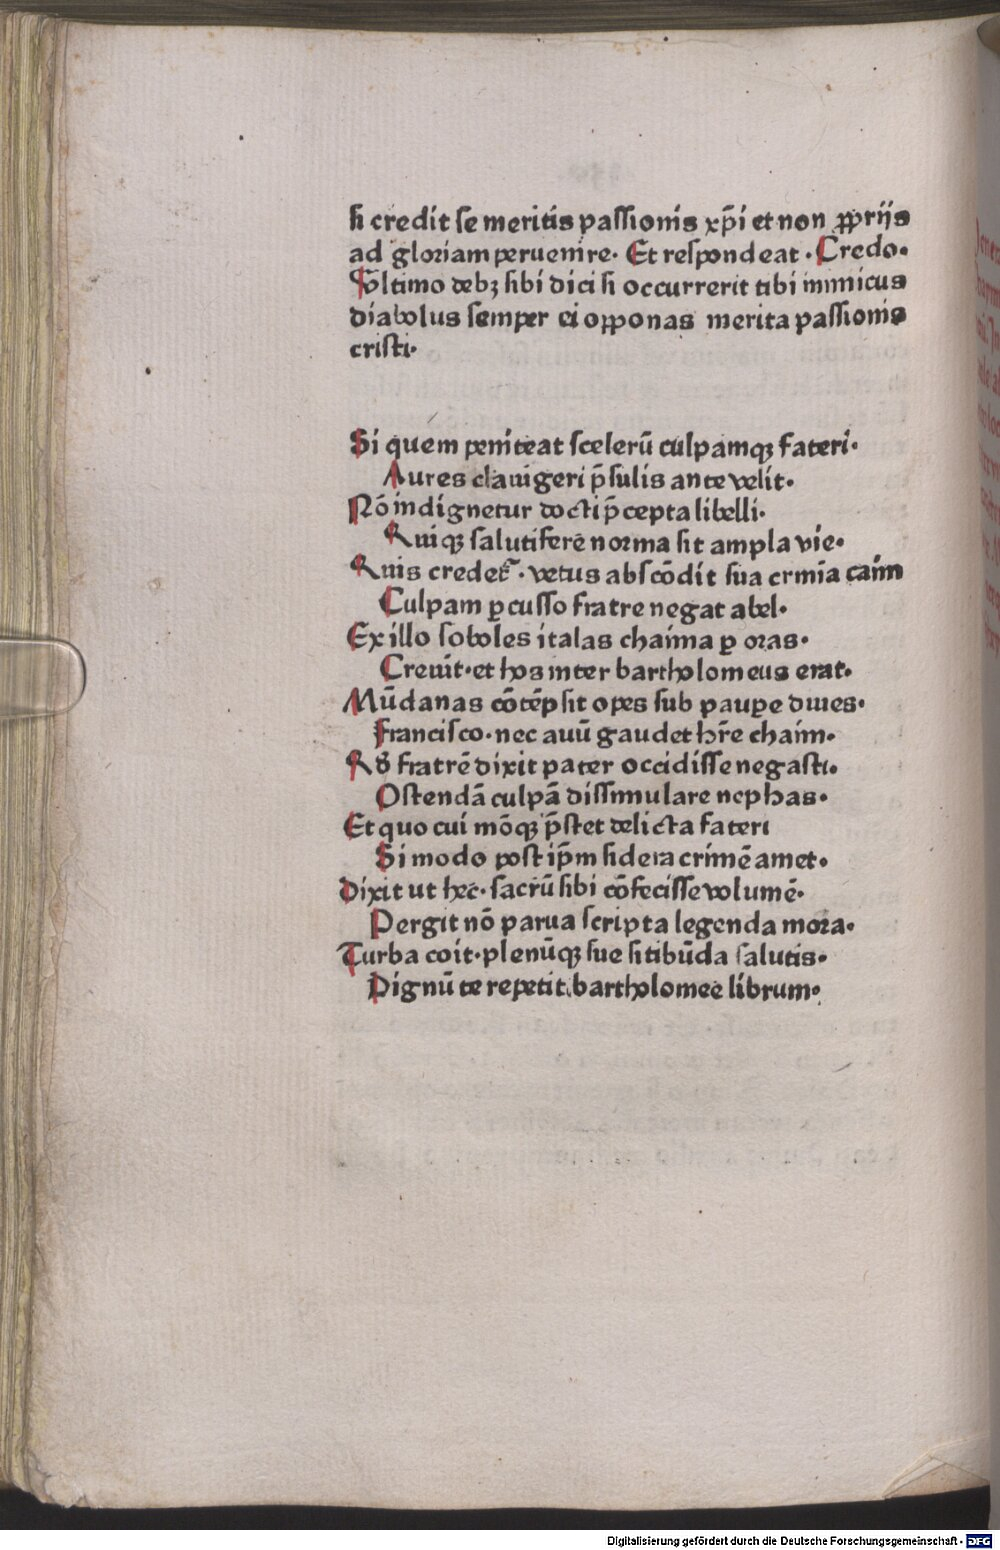 si credit se meritis passionis xp̄i et non ꝓprijs
ad gloriam peruenire· Et respondeat · Credo·
Vltimo debꝫ sibi dici si occurrerit tibi inimicus
diabolus semper ei opponas merita passionis
cristi·
Si quem peniteat scelerū culpamqꝫ fateri·
Aures clauigeri p̄sulis ante velit·
Nō indignetur docti p̄cepta libelli·
Quiqꝫ salutifere norma sit ampla vie·
Quis credet᷑· vetus abscōdit sua crimīa caim
Culpam ꝑcusso fratre negat abel·
Ex illo soboles italas chaima ꝑ oras·
Creuit· et hos inter bartholomeus erat·
Mūdanas cōtēpsit opes sub paupe diues·
Francisco· nec auū gaudet hr̄e chaim·
fratrē dixit pater occidisse negasti·
Ostendā culpā dissimulare nephas·
Et quo cui mōqꝫ p̄stet delicta fateri
Si modo post ip̄m sidera crimē amet·
Dixit ut hec· sacrū sibi cōfecisse volumē·
Pergit nō parua scripta legenda mora·
Turba coit· plenūqꝫ sue sitibūda salutis·
Dignū te repetit bartholomee librum·
Digitalisierung gefördert durch die Deutsche Forschungsgemeinschaft - DFG